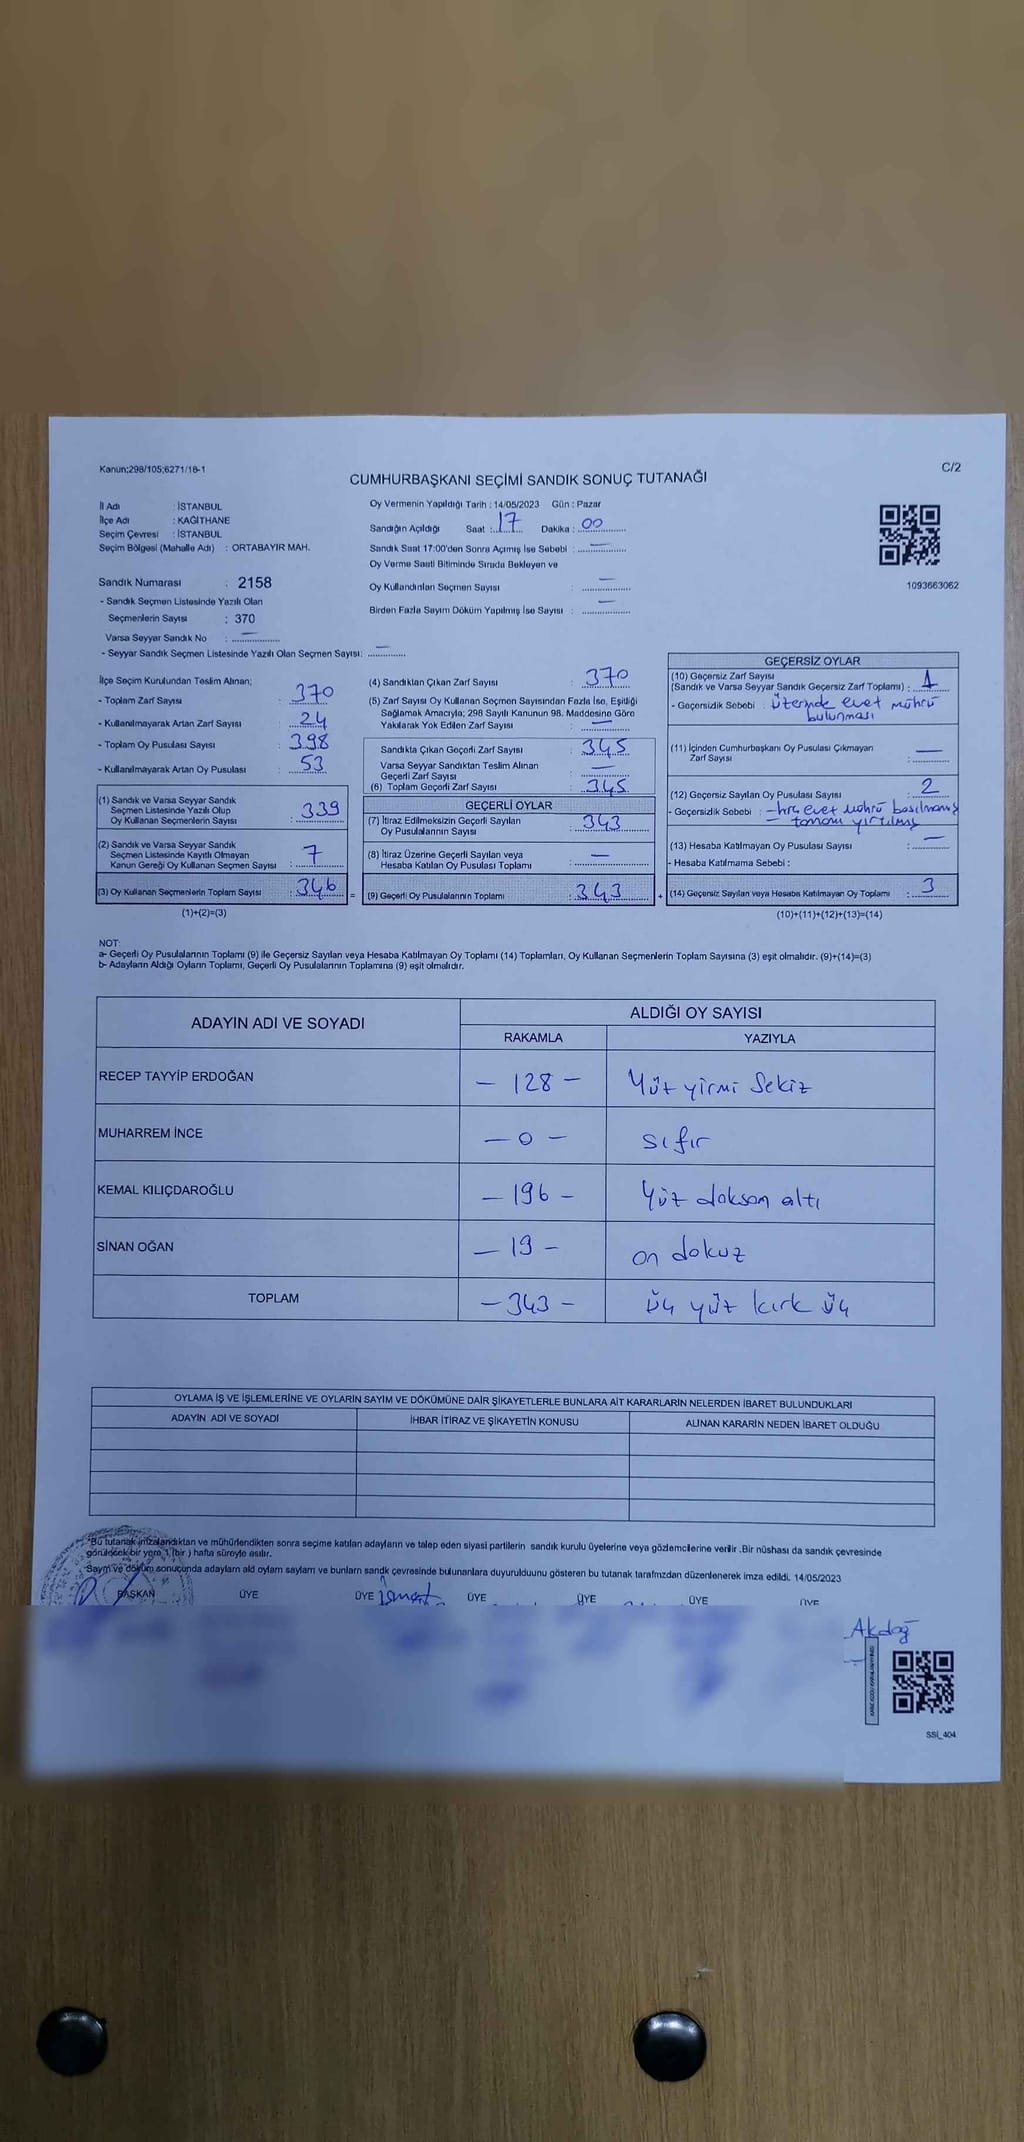 Kanun;298/105;6271/18-1
C/2
CUMHURBAŞKANI SEÇİMİ SANDIK SONUÇ TUTANAĞI
İl Adı : İSTANBUL
İlçe Adı : KAĞITHANE
Seçim Çevresi : İSTANBUL
Seçim Bölgesi (Mahalle Adı) : ORTABAYIR MAH.
Sandık Numarası : 2158
- Sandık Seçmen Listesinde Yazılı Olan
Seçmenlerin Sayısı : 370
Varsa Seyyar Sandık No : —
- Seyyar Sandık Seçmen Listesinde Yazılı Olan Seçmen Sayısı: —
Oy Vermenin Yapıldığı Tarih : 14/05/2023 Gün : Pazar
Sandığın Açıldığı Saat : 17 Dakika : 00
Sandık Saat 17:00'den Sonra Açımış İse Sebebi : —
Oy Verme Saati Bitiminde Sırada Bekleyen ve
Oy Kullandırılan Seçmen Sayısı : —
Birden Fazla Sayım Döküm Yapılmış İse Sayısı : —
1093663062
İlçe Seçim Kurulundan Teslim Alınan;
- Toplam Zarf Sayısı : 370
- Kullanılmayarak Artan Zarf Sayısı : 24
- Toplam Oy Pusulası Sayısı : 398
- Kullanılmayarak Artan Oy Pusulası : 53
(1) Sandık ve Varsa Seyyar Sandık
Seçmen Listesinde Yazılı Olup
Oy Kullanan Seçmenlerin Sayısı : 339
(2) Sandık ve Varsa Seyyar Sandık
Seçmen Listesinde Kayıtlı Olmayan
Kanun Gereği Oy Kullanan Seçmen Sayısı : 7
(3) Oy Kullanan Seçmenlerin Toplam Sayısı : 346 =
(1)+(2)=(3)
(4) Sandıktan Çıkan Zarf Sayısı : 370
(5) Zarf Sayısı Oy Kullanan Seçmen Sayısından Fazla İse, Eşitliği
Sağlamak Amacıyla; 298 Sayılı Kanunun 98. Maddesine Göre
Yakılarak Yok Edilen Zarf Sayısı : —
Sandıkta Çıkan Geçerli Zarf Sayısı : 345
Varsa Seyyar Sandıktan Teslim Alınan
Geçerli Zarf Sayısı : —
(6) Toplam Geçerli Zarf Sayısı : 345
GEÇERLİ OYLAR
(7) İtiraz Edilmeksizin Geçerli Sayılan
Oy Pusulalarının Sayısı : 343
(8) İtiraz Üzerine Geçerli Sayılan veya
Hesaba Katılan Oy Pusulası Toplamı : —
(9) Geçerli Oy Pusulalarının Toplamı : 343 +
GEÇERSİZ OYLAR
(10) Geçersiz Zarf Sayısı
(Sandık ve Varsa Seyyar Sandık Geçersiz Zarf Toplamı) : 1
- Geçersizlik Sebebi : üzerinde evet mührü
bulunması
(11) İçinden Cumhurbaşkanı Oy Pusulası Çıkmayan
Zarf Sayısı : —
(12) Geçersiz Sayılan Oy Pusulası Sayısı : 2
- Geçersizlik Sebebi : - hiç evet mührü basılmamış
- tamamı yırtılmış
(13) Hesaba Katılmayan Oy Pusulası Sayısı : —
- Hesaba Katılmama Sebebi :
(14) Geçersiz Sayılan veya Hesaba Katılmayan Oy Toplamı : 3
(10)+(11)+(12)+(13)=(14)
NOT:
a- Geçerli Oy Pusulalarının Toplamı (9) ile Geçersiz Sayılan veya Hesaba Katılmayan Oy Toplamı (14) Toplamları, Oy Kullanan Seçmenlerin Toplam Sayısına (3) eşit olmalıdır. (9)+(14)=(3)
b- Adayların Aldığı Oyların Toplamı, Geçerli Oy Pusulalarının Toplamına (9) eşit olmalıdır.
ADAYIN ADI VE SOYADI ALDIĞI OY SAYISI
RAKAMLA YAZIYLA
RECEP TAYYİP ERDOĞAN - 128 - Yüz yirmi sekiz
MUHARREM İNCE - 0 - sıfır
KEMAL KILIÇDAROĞLU - 196 - Yüz doksan altı
SİNAN OĞAN - 19 - on dokuz
TOPLAM - 343 - üç yüz kırk üç
OYLAMA İŞ VE İŞLEMLERİNE VE OYLARIN SAYIM VE DÖKÜMÜNE DAİR ŞİKAYETLERLE BUNLARA AİT KARARLARIN NELERDEN İBARET BULUNDUKLARI
ADAYIN ADI VE SOYADI İHBAR İTİRAZ VE ŞİKAYETİN KONUSU ALINAN KARARIN NEDEN İBARET OLDUĞU
"Bu tutanak imzalandıktan ve mühürlendikten sonra seçime katılan adayların ve talep eden siyasi partilerin sandık kurulu üyelerine veya gözlemcilerine verilir .Bir nüshası da sandık çevresinde
görülecek bir yere 1 (bir ) hafta süreyle asılır.
Sayım ve döküm sonucunda adayların aldı oyların sayların ve bunların sandk çevresinde bulunanlara duyurulduunu gösteren bu tutanak tarafmzdan düzenlenerek imza edildi. 14/05/2023
BAŞKAN ÜYE ÜYE İsmet ÜYE ÜYE ÜYE ÜYE
Akdağ
SSİ_404